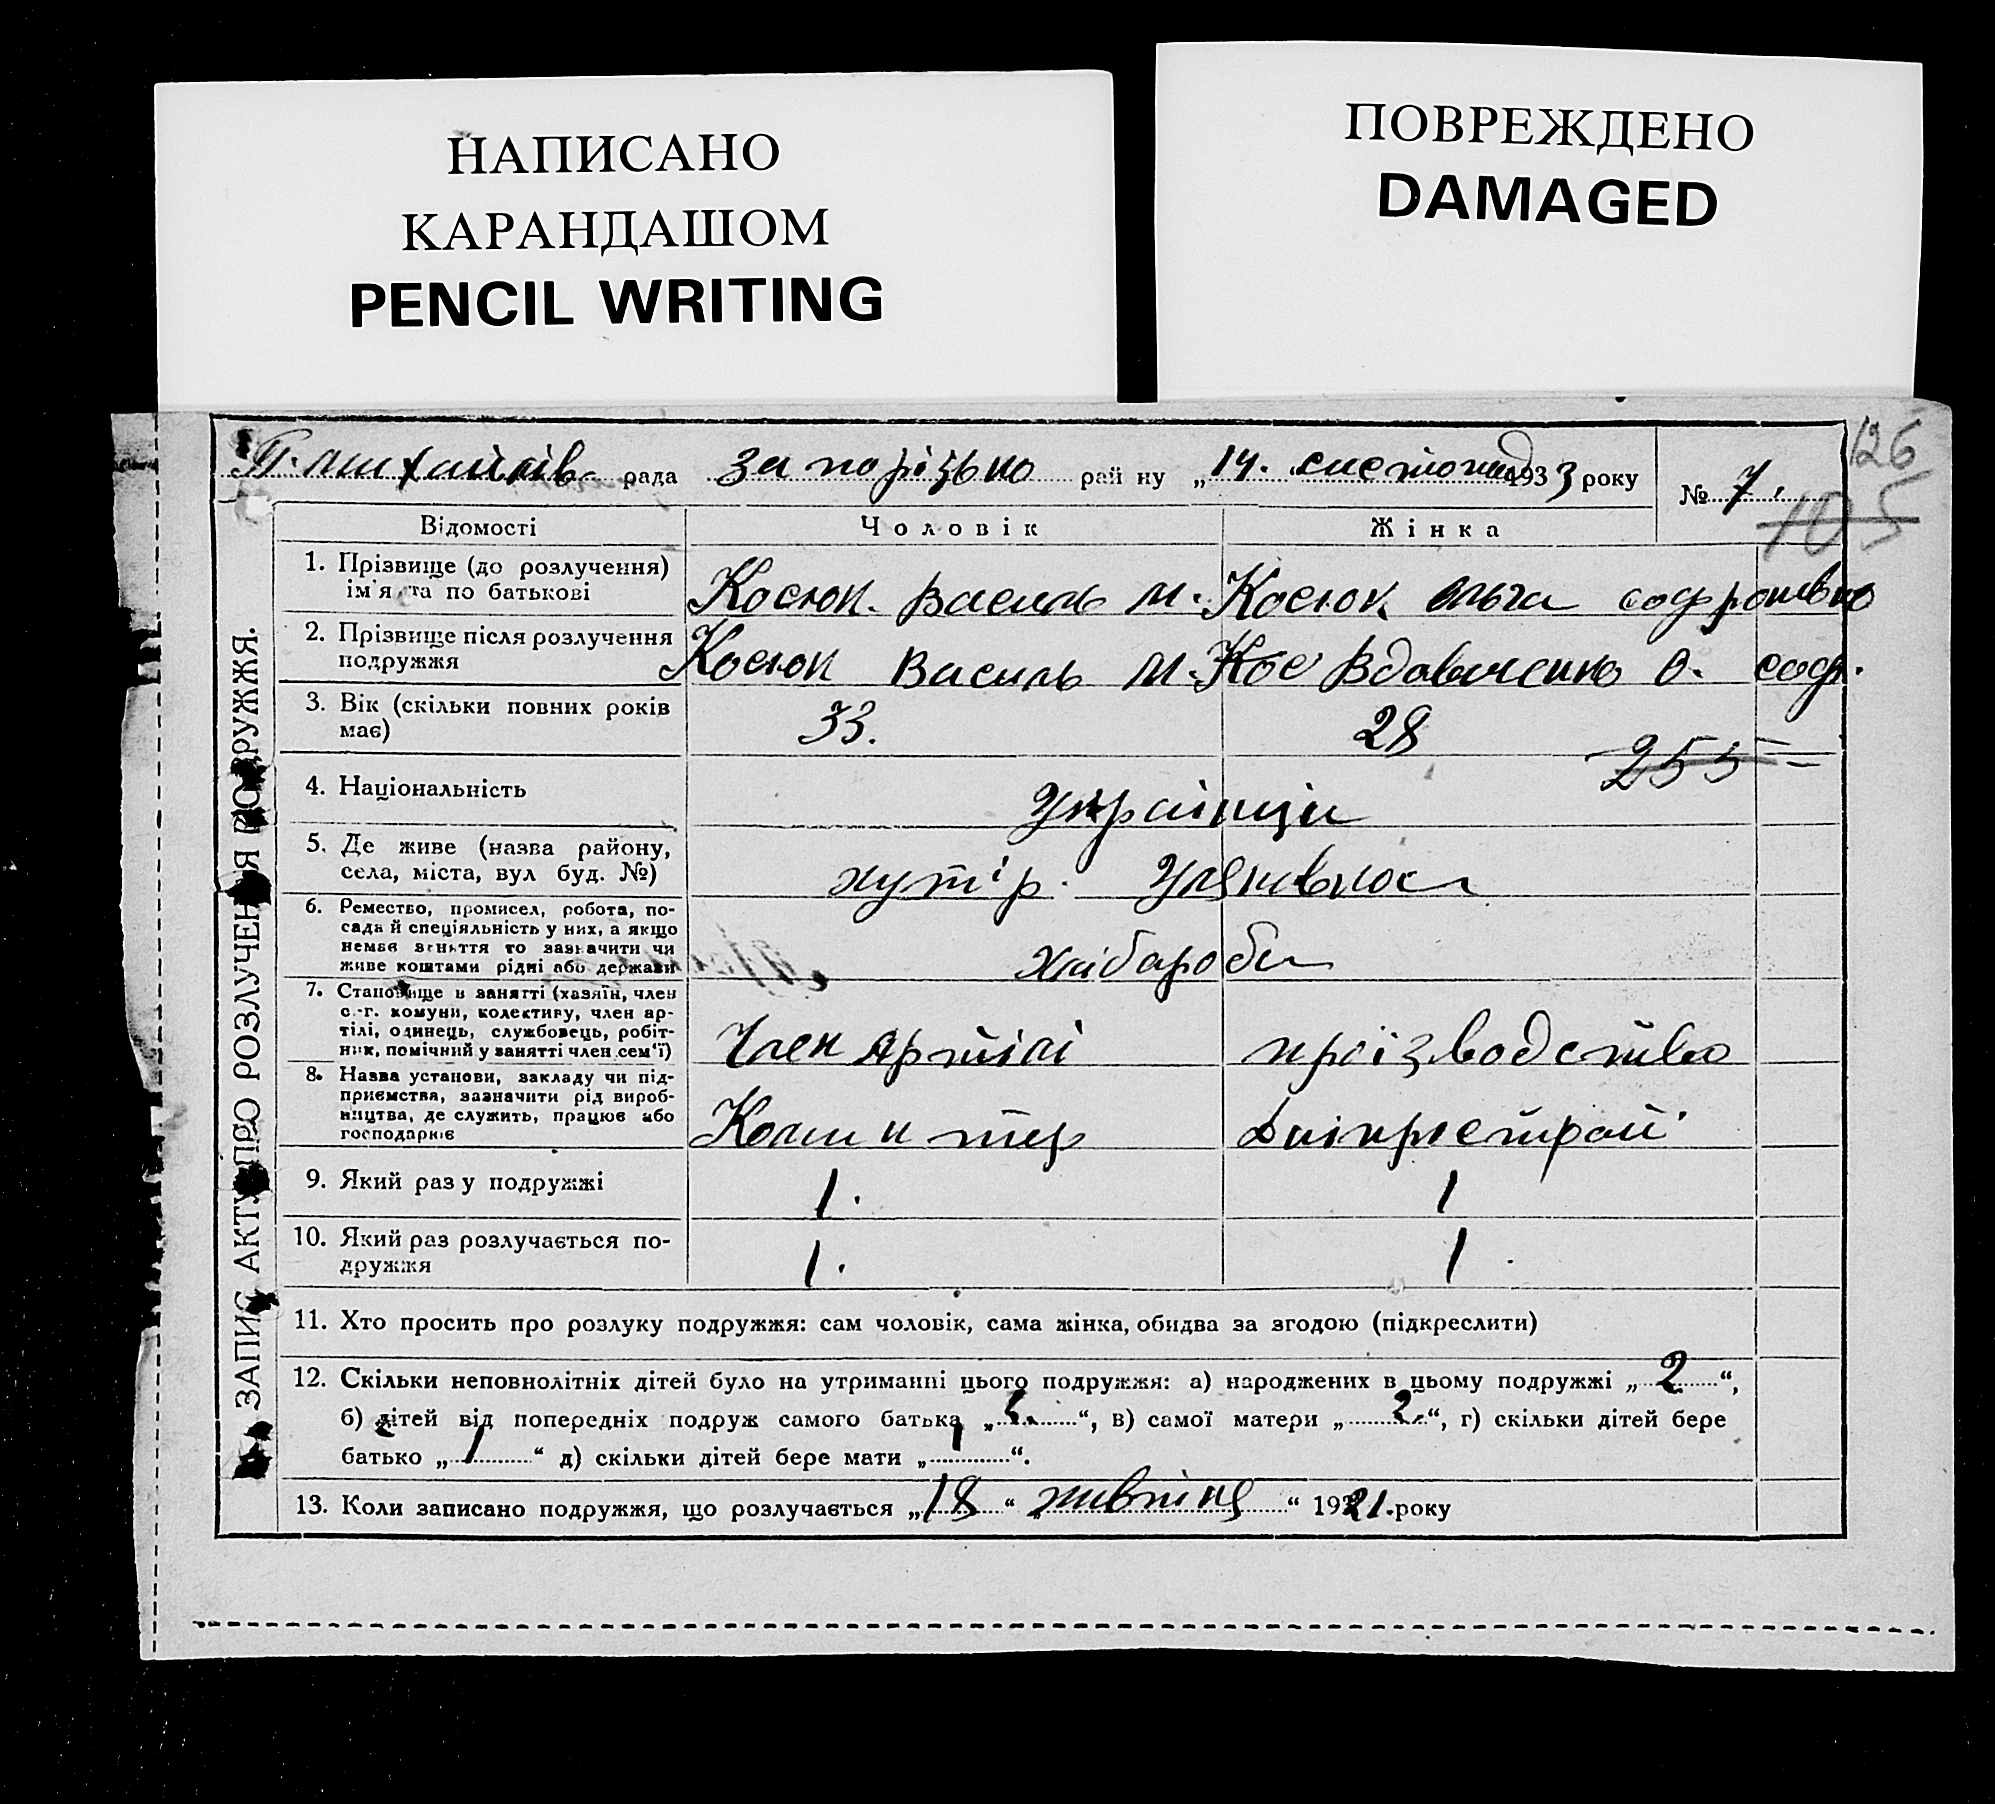 НАПИСАНО
КАРАНДАШОМ
PENCIL WRITING
ПОВРЕЖДЕНО
DAMAGED
126
рада рай ну „14. 1933 року
№ 7.
105
ЗАПИС АКТУ ПРО РОЗЛУЧЕННЯ ПОДРУЖЖЯ.
Відомості Чоловік Жінка
1. Прізвище (до розлучення) ім'я та по батькові
Косюк Василь М. Косюк Ольга Софронівно
2. Прізвище після розлучення подружжя
Косюк Василь М. Кос Вдовиченко О. Соф.
3. Вік (скільки повних років має)
33. 28
255
4. Національність
Українці
5. Де живе (назва району, села, міста, вул буд. №)
хутір
6. Ремество, промисел, робота, по-
сада й спеціяльність у них, а якщо
немає заняття то зазначити чи
живе коштами рідні або держави
хліборобі
7. Становище в занятті (хазяїн, член
с.-г. комуни, колективу, член ар-
тілі, одинець, службовець, робіт-
ник, помічний у занятті член сем'ї)
Член Артілі проізводство
8. Назва установи, закладу чи під-
приємства, зазначити рід вироб-
ництва, де служить, працює або
господарює
Дніпрестрой
9. Який раз у подружжі
1. 1
10. Який раз розлучається по-
дружжя
1. 1.
11. Хто просить про розлуку подружжя: сам чоловік, сама жінка, обидва за згодою (підкреслити)
12. Скільки неповнолітніх дітей було на утриманні цього подружжя: а) народжених в цьому подружжі „ 2 “,
б) дітей від попередніх подруж самого батька „ “, в) самої матери „ 2. “, г) скільки дітей бере
батько „ 1 “ д) скільки дітей бере мати „ 1 “.
13. Коли записано подружжя, що розлучається „ 18 “ „ жовтня “ 1921. року